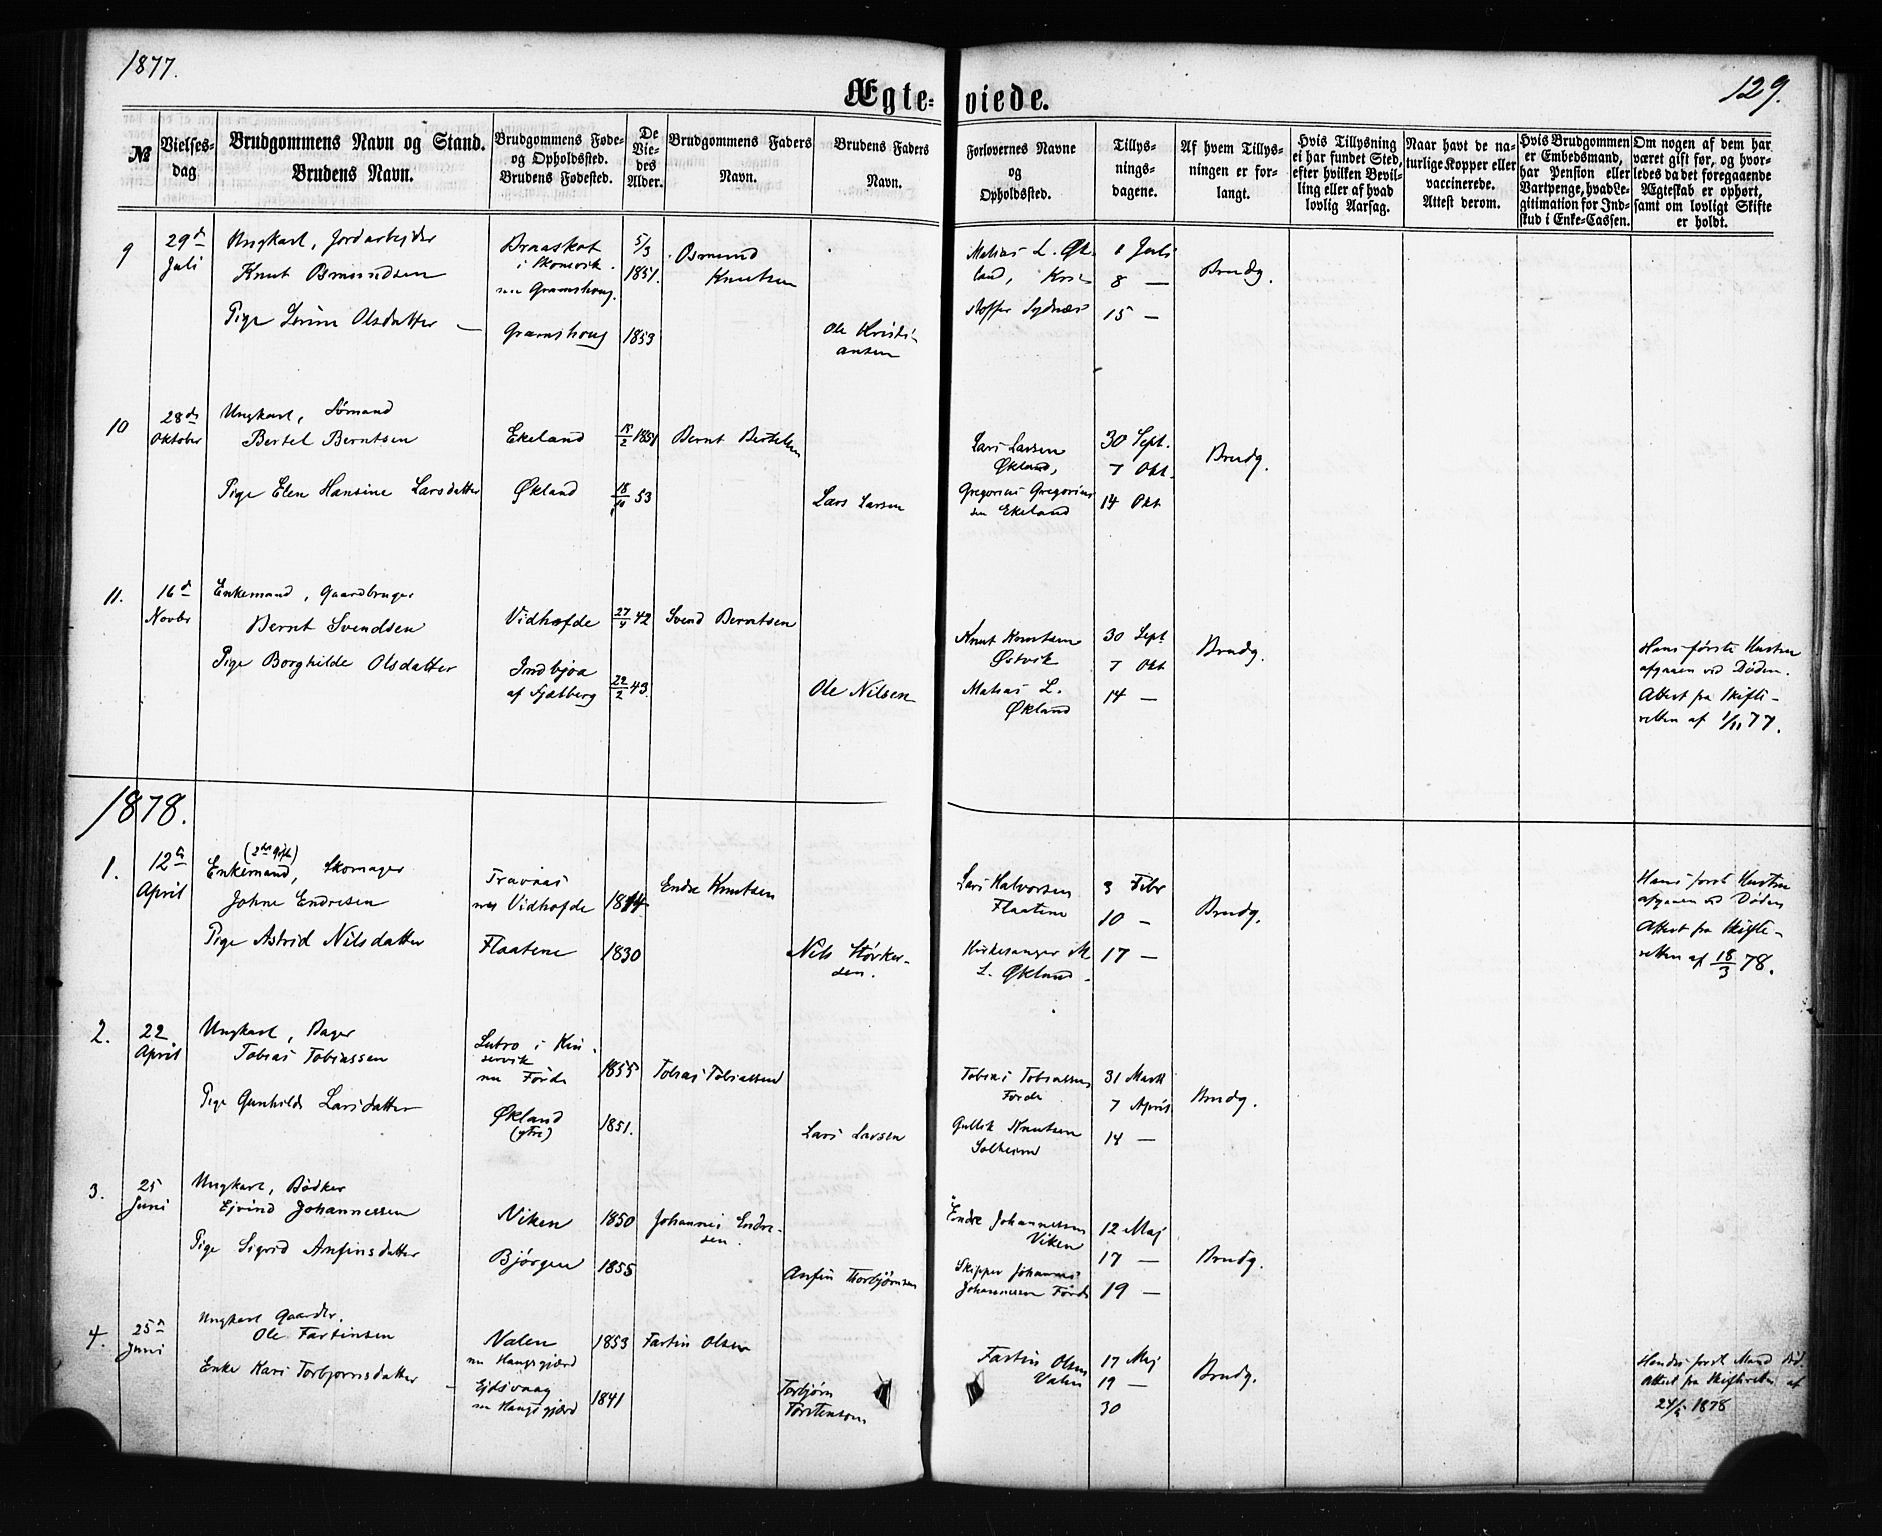 1877.
129.
Ægte- viede.
№
Vielses-
dag.
Brudgommens Navn og Stand.
Brudens Navn.
Brudgommens Føde-
og Opholdssted.
Brudens Fødested.
De
Vie-
des
Alder.
Brudgommens Faders
Navn.
Brudens Faders
Navn.
Forlovernes Navne
og
Opholdssted.
Tillys-
nings-
dagene.
Af hvem Tillys-
ningen er for-
langt.
Hvis Tillysning
ei har fundet Sted,
efter hvilken Bevil-
ling eller af hvad
lovlig Aarsag.
Naar havt de na-
turlige Kopper eller
vaccinerede.
Attest derom.
Hvis Brudgommen
er Embedsmand,
har Pension eller
Vartpenge, hvad Le-
gitimation for Ind-
skud i Enke-Cassen.
Om nogen af dem har
været gift før, og hvor-
ledes da det foregaaende
Ægteskab er ophørt,
samt om lovligt Skifte
er holdt.
9
29de
Juli
Ungkarl, Jordarbejder
Knut Osmundsen
Pige Serine Olsdatter
Braaskat
i Skonevik
nu Gramshoug.
Gramshoug
5/3
1851.
1853
Osmund
Knutsen
Ole Kristi-
ansen
Matias L. Øk-
land, Kri-
stoffer Sydnæs
1 Juli
8 —
15 —
Brudg.
10
28de
Oktober
Ungkarl, Sømand
Bertel Berntsen
Pige Elen Hansine Larsdatter
Ekeland
Økland
1851
18/10 53
Bernt Bertelsen
Lars Larsen
Lars Larsen
Økland,
Gregorius Gregorius-
sen Ekeland
30 Sept.
7 Okt.
14 Okt
Brudg.
11.
16de
Novbr
Enkemand, Gaardbruger
Bernt Svendsen
Pige Borghilde Olsdatter
Vidhofde
Indbjoa
af Fjelberg
27/4 42
22/2 43.
Svend Berntsen
Ole Nilsen
Knut Knutsen
Østvik
Matias L.
Økland
30 Sept
7 Okt
14 —
Brudg.
Hans første Hustru
afgaaen ved Døden.
Attest fra Skifte-
retten af 1/11 77.
1878.
1.
12te
April
(2den Gift)
Enkemand, Skomager
Johne Endresen
Pige Astrid Nilsdatter
Travaas
nu Vidhofde
Flaatene
1830
Endre Knutsen
Nils Størker-
sen.
Lars Halvorsen
Flaatene
Kirkesanger M
L. Økland.
3 Febr
10 —
17 —
Brudg.
Hans først Hustru
afgaaen ved Døden
Attest fra Skifte-
retten af 18/3 78.
2.
22
April
Ungkarl, Bager
Tobias Tobiassen
Pige Gunhilde Larsdatter
Lutro i Kin-
servik
nu Førde
Økland
(ytre)
1855
1851.
Tobias Tobiassen
Lars Larsen
Tobias Tobiassen
Førde
Gullik Knutsen
Solheim
31 Marts
7 April
14 —
Brudg.
3.
25
Juni
Ungkarl, Bødker
Ejvind Johannessen
Pige Sigrid Anfinsdatter
Viken
Bjørgen
1850
1855
Johannes Endre-
sen.
Anfin Thorbjørnsen
Endre Johannessen
Viken
Skipper Johannes
Johannessen Førde
12 Maj
17 —
19 —
Brudg.
4.
25de
Juni
Ungkarl Gaardbr.
Ole Fartinsen
Enke Kari Torbjornsdatter
Valen
nu Haugsgjærd
Ejdsvaag
nu Haugsgjærd
1853
1841
Fartin Olsen
Torbjørn
Torstenson
Fartin Olsen
Valen
17 Maj
19 —
30
Brudg.
Hendes først Mand død.
Attest fra Skifteretten af
1878